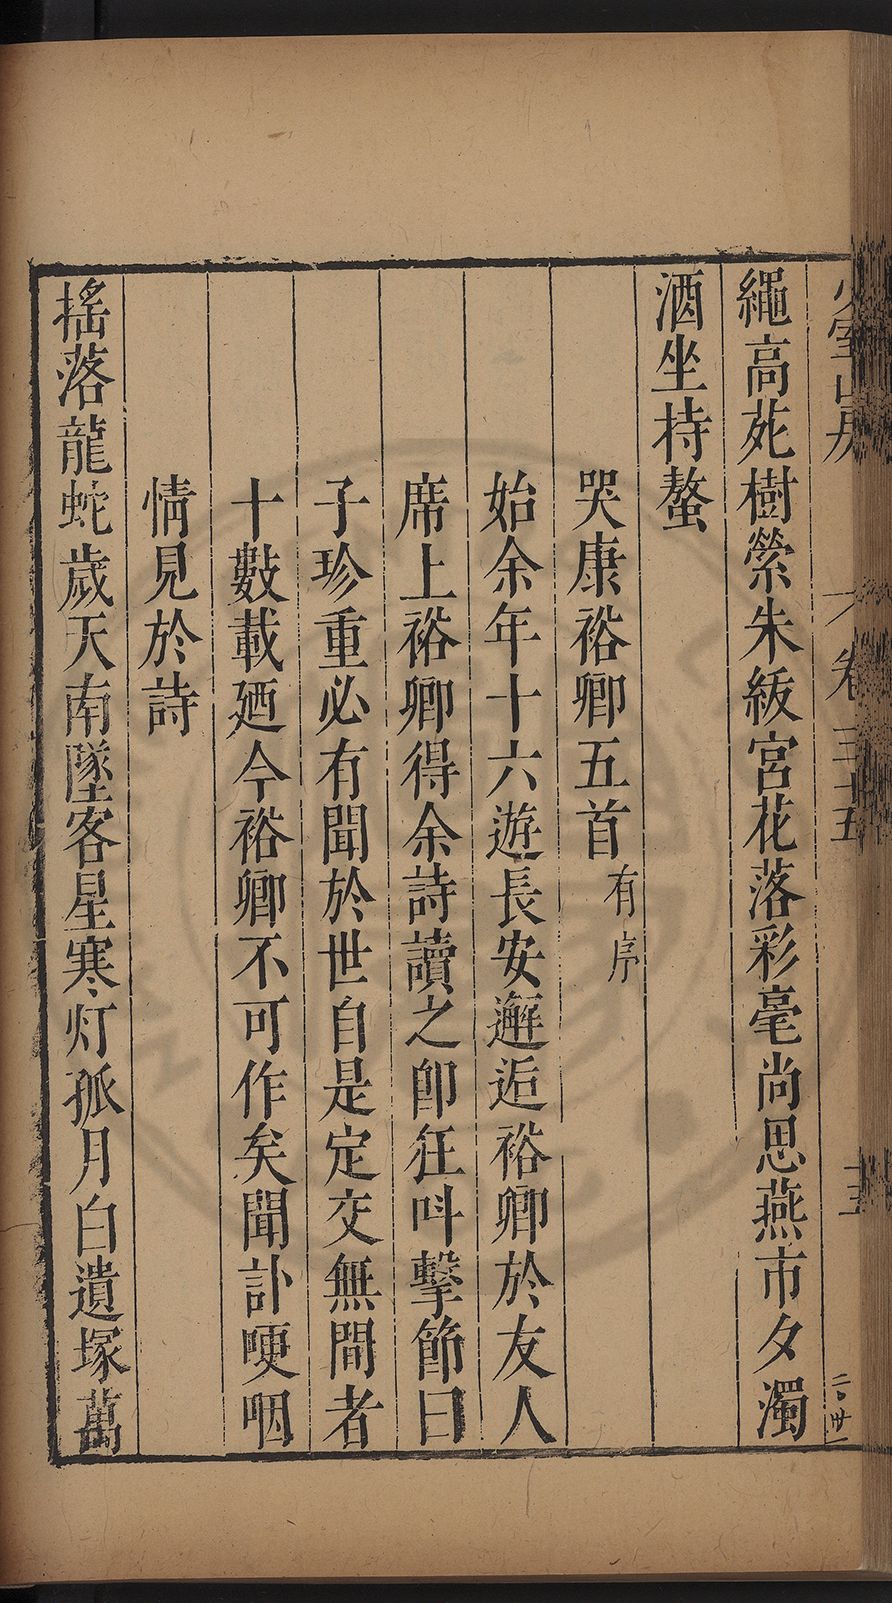 少室山房 卷三十五 十三
繩高苑樹縈朱紱宮花落彩毫尚思燕市夕濁
酒坐持螯
哭康裕卿五首有序
始余年十六遊長安邂逅裕卿於友人
席上裕卿得余詩讀之卽狂呌擊節曰
子珍重必有聞於世自是定交無間者
十數載廼今裕卿不可作矣聞訃哽咽
情見於詩
搖落龍蛇歲天南墜客星寒灯孤月白遺塚萬